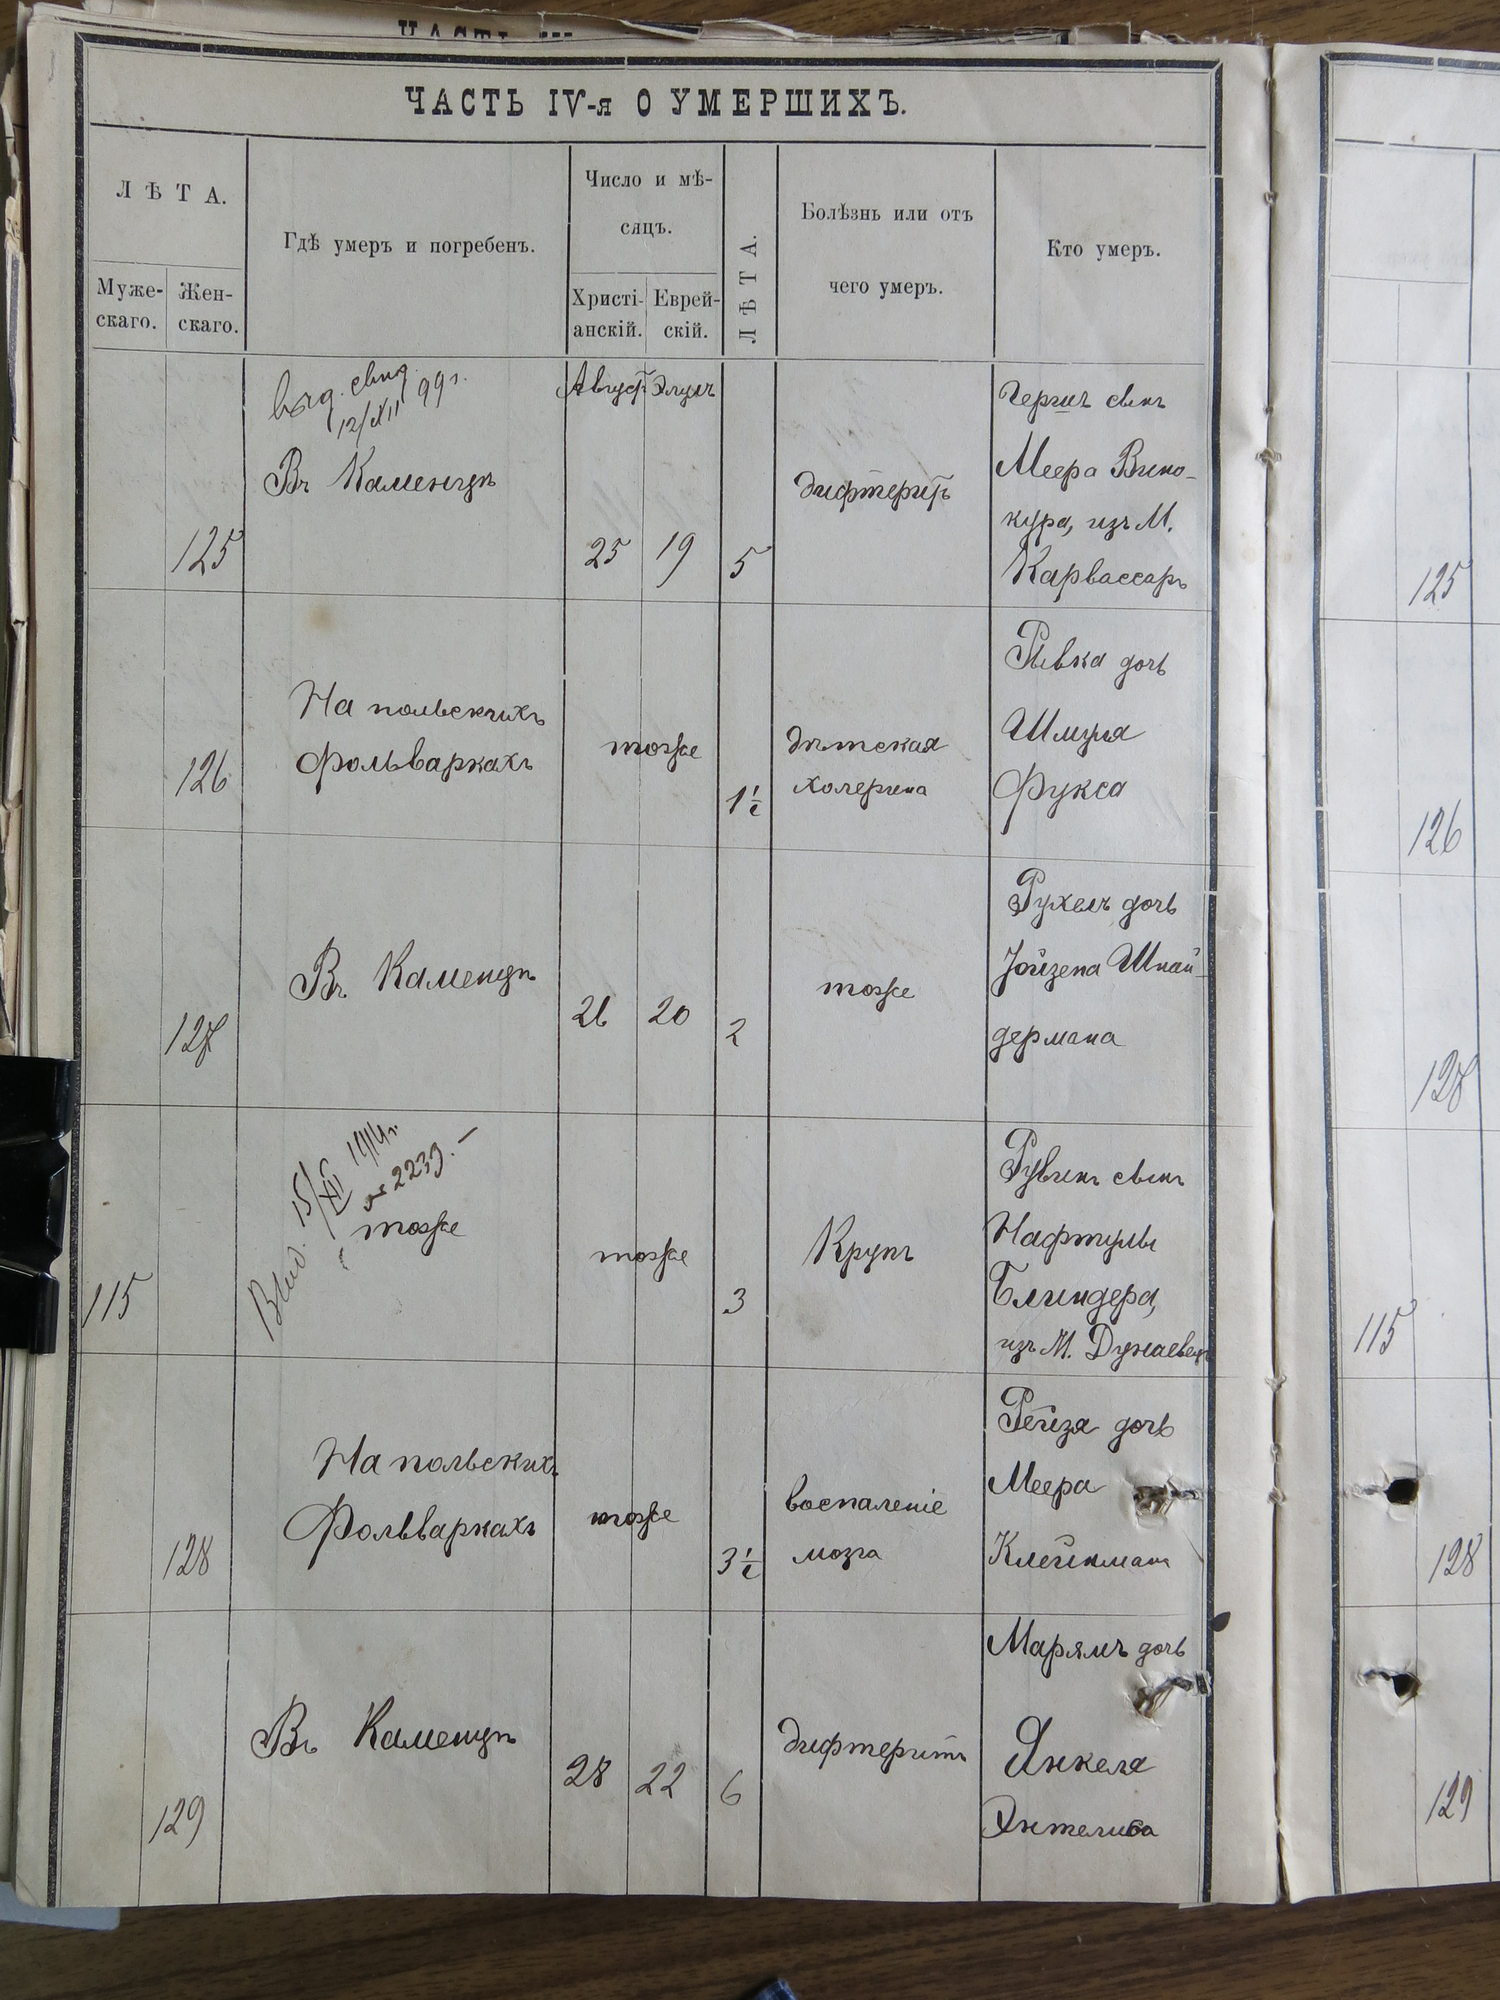 ЧАСТЬ IV-я О УМЕРШИХЪ.
ЛѢТА.
Муже-
скаго.
Жен-
скаго.
Гдѣ умеръ и погребенъ.
Число и мѣ-
сяцъ.
Христі-
анскій.
Еврей-
скій.
ЛѢТА.
Болѣзнь или отъ
чего умеръ.
Кто умеръ.
12/XII 99 г.
Августъ Элулъ
125
Въ Каменцѣ
25 19 5
дифтеритъ
сынъ
Меера Вино-
кура, изъ М.
Карвассаръ
125
126
На польскихъ
фольваркахъ
тоже
1½
дѣтская
холерина
Рывка дочь
Шмуля
Фукса
126
127
Въ Каменцѣ
26 20 2
тоже
Рухель дочь
Іойзепа Шнай-
дермана
127
115
Выд. 15/XII 1914 г.
№ 2239.-
тоже
тоже
3
Крупъ
Рувинъ сынъ
Нафтулы
Блиндера,
изъ М. Дунаевецъ
115
128
На польскихъ
Фольваркахъ
тоже
3½
воспаленіе
мозга
Рейзя дочь
Меера
Клейнман
128
129
Въ Каменцѣ
28 22 6
дифтеритъ
Марямъ дочь
Янкеля
129